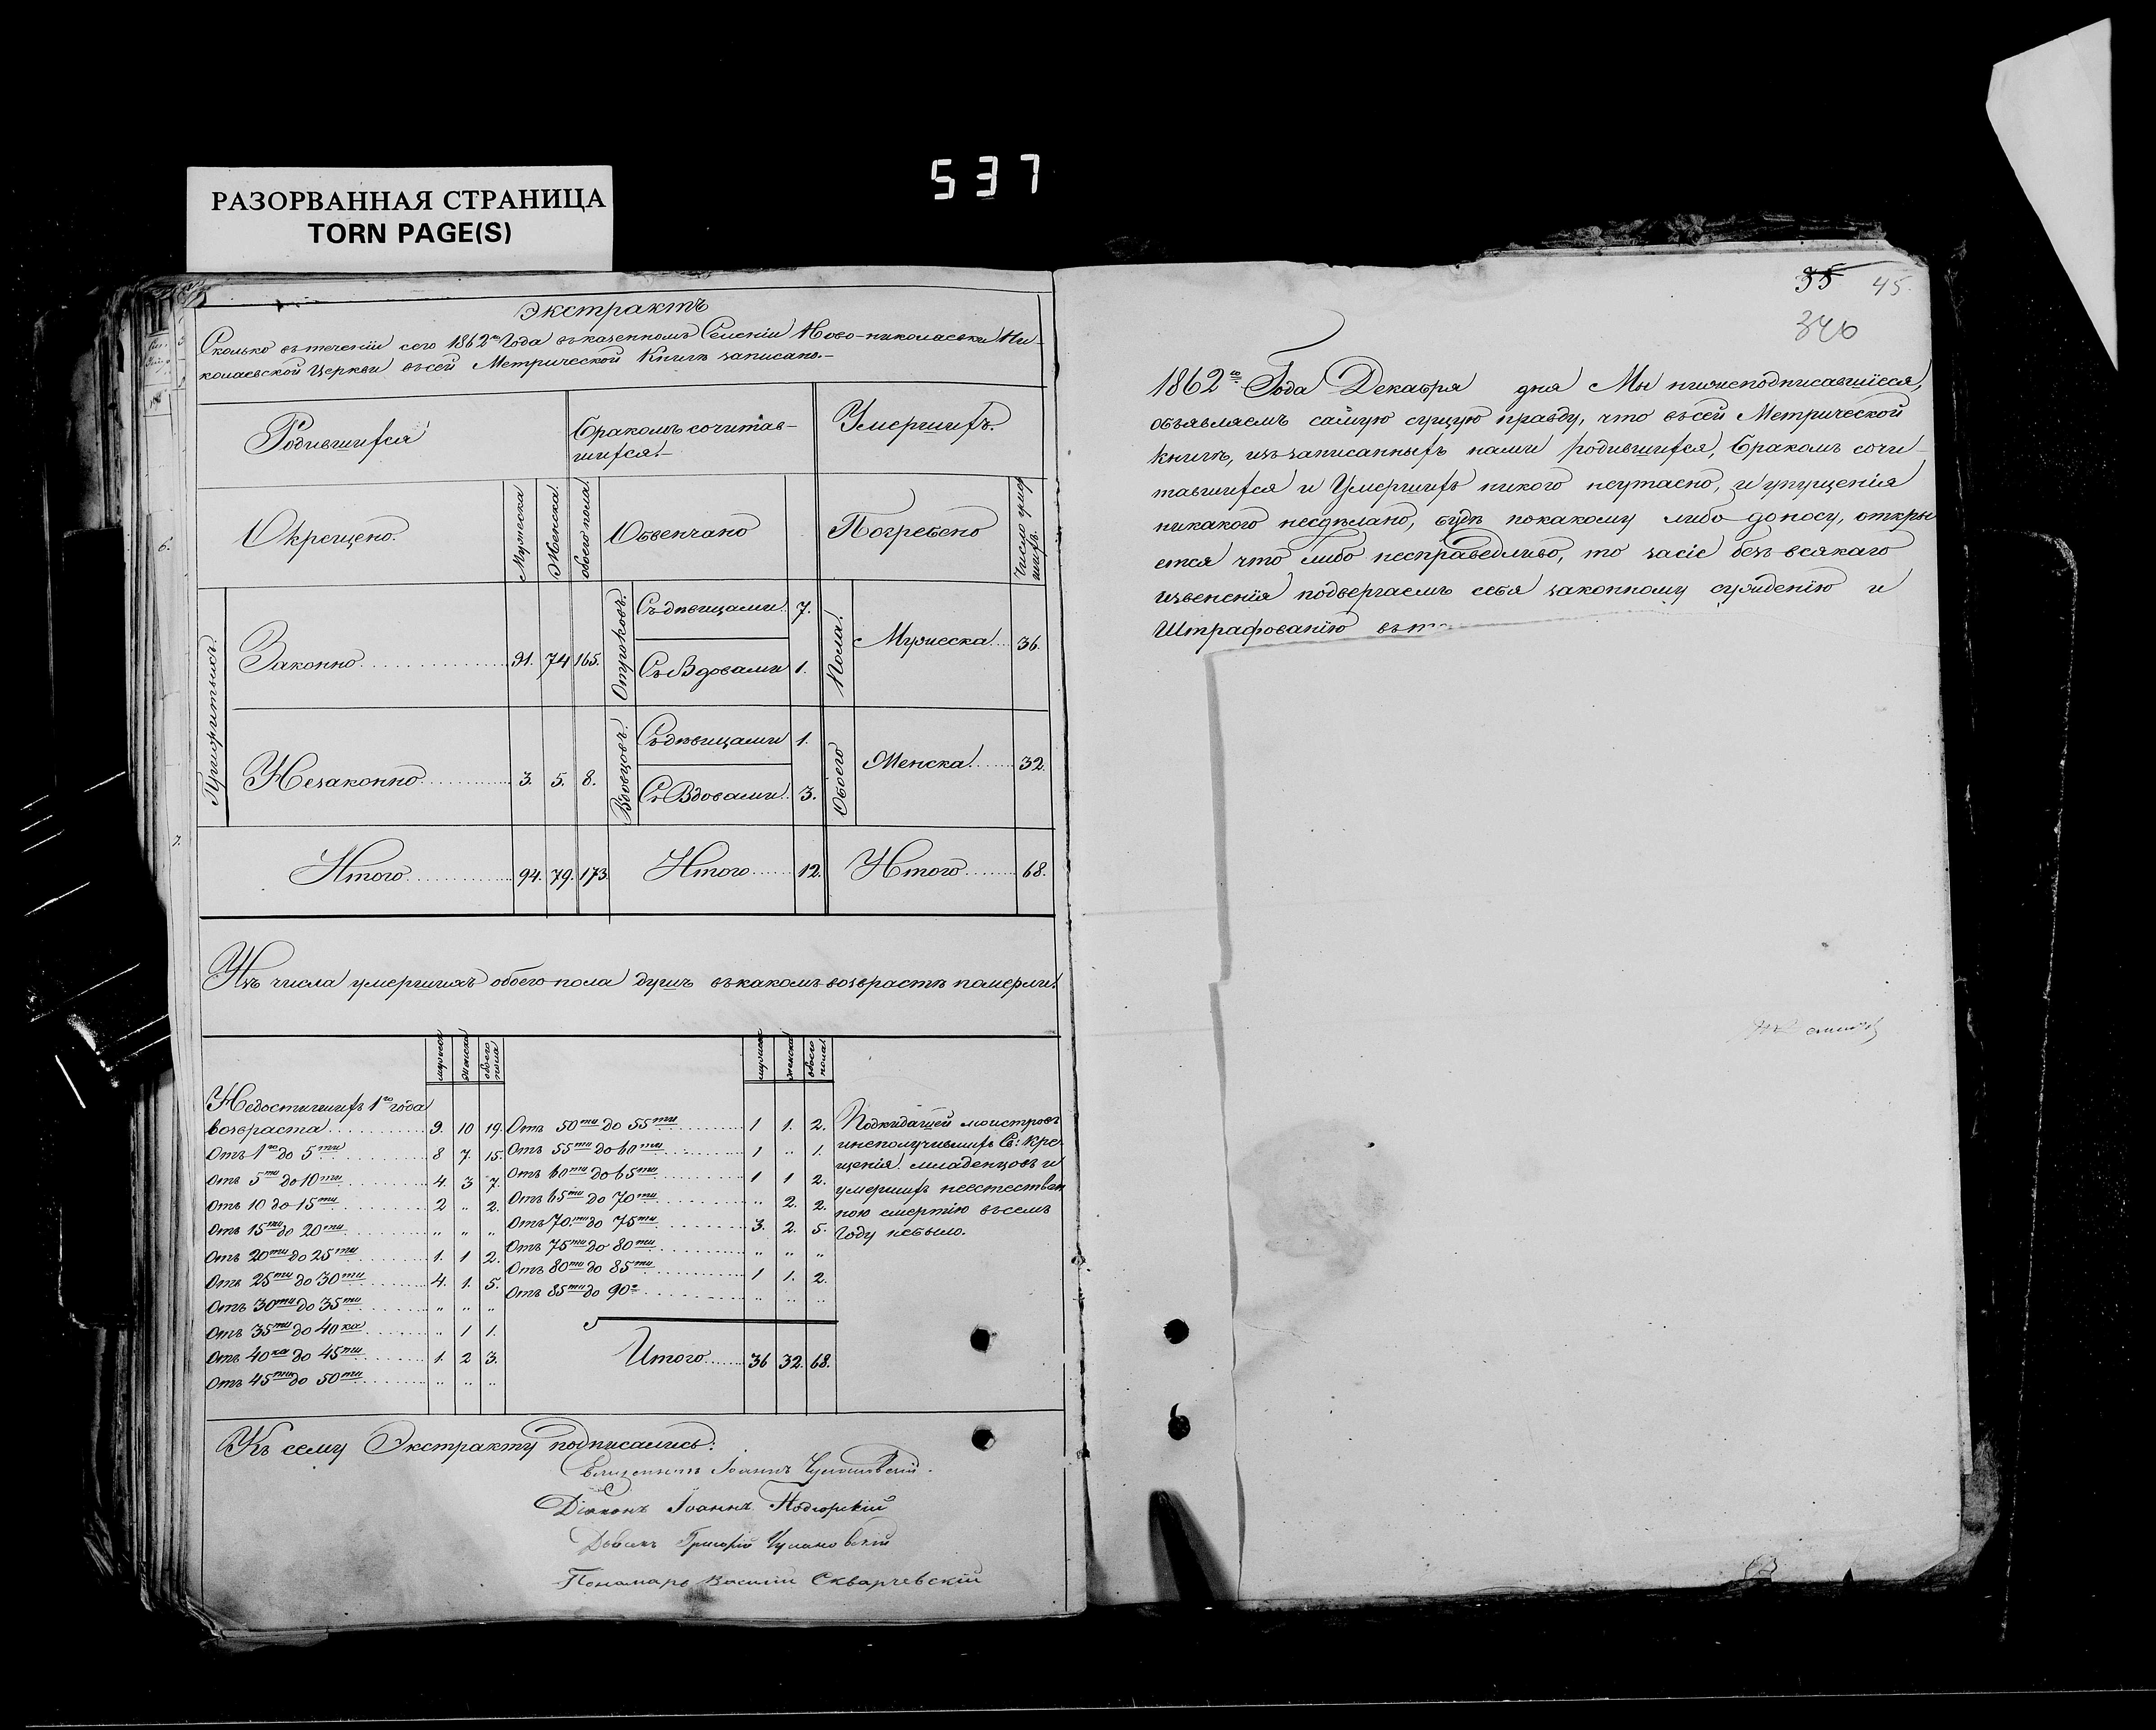 РАЗОРВАННАЯ СТРАНИЦА
TORN PAGE(S)
537
Экстрактъ
Сколько въ теченіи сего 1862го Года въ казенномъ Селеніи Ново-николаевки Ни-
колаевской Церкви въ сей Метрической Книгѣ записано.-
Родившихся
Бракомъ сочитав-
шихся.-
Умершихъ.
Окрещено.
Мужеска
Женска.
обоего пола.
Обвенчано
Погребено
Число умер
шихъ.
Законно 91. 74 165.
Отроковъ.
Съ дѣвицами 7.
Съ Вдовами 1.
Пола.
Мужеска 36.
Незаконно 3. 5. 8.
Вдовцовъ.
Съ дѣвицами 1.
Съ Вдовами 3.
Обоего
Женска 32.
Итого 94. 79. 173.
Итого 12.
Итого 68.
Изъ числа умершихъ обоего пола душъ въ какомъ возврастѣ померли.
мужеск
женска
обоего
пола
мужеск
женска
обоего
пола.
Недостигшихъ 1го года
возвраста 9. 10 19.
Отъ 1го до 5ти 8 7. 15.
Отъ 5ти до 10ти 4. 3 7.
Отъ 10 до 15ти 2 .. 2.
Отъ 15ти до 20ти .. .. ..
Отъ 20ти до 25ти 1. 1 2.
Отъ 25ти до 30ти 4. 1. 5.
Отъ 30ти до 35ти .. .. ..
Отъ 35ти до 40ка .. 1 1.
Отъ 40ка до 45ти 1. 2 3.
Отъ 45ти до 50ти .. .. ..
Отъ 50ти до 55ти 1 1. 2.
Отъ 55ти до 60ти 1 .. 1.
Отъ 60ти до 65ти 1 1 2.
Отъ 65ти до 70ти .. 2. 2.
Отъ 70ти до 75ти 3. 2. 5.
Отъ 75ти до 80ти .. .. ..
Отъ 80ти до 85ти 1 1. 2.
Отъ 85ти до 90о .. .. ..
Итого 36 32. 68.
моистровъ
инеполучившихъ Св: Кре-
щенія младенцовъ и
умершихъ неестествен
ною смертію въ семъ
Году небыло.
Къ сему Экстракту подписались:
Священникъ Іоаннъ
Діаконъ Іоаннъ Подгорскій
Дьячекъ Григорій
Пономарь Василій Скварчевскій
35 45.
346
1862го Года Декабря дня Мы нижеподписавшіеся,
объявляемъ самую сущую правду, что въ сей Метрической
книгѣ, изъ записанныхъ нами родившихся, Бракомъ сочи-
тавшихся и Умершихъ никого неутаено, и упущенія
никакого несдѣлано, будѣ покакому либо доносу, откры
ется что либо несправедливо, то засіе безъ всякаго
извененія подвергаемъ себя законному сужденію и
Штрафованію
6.
7.